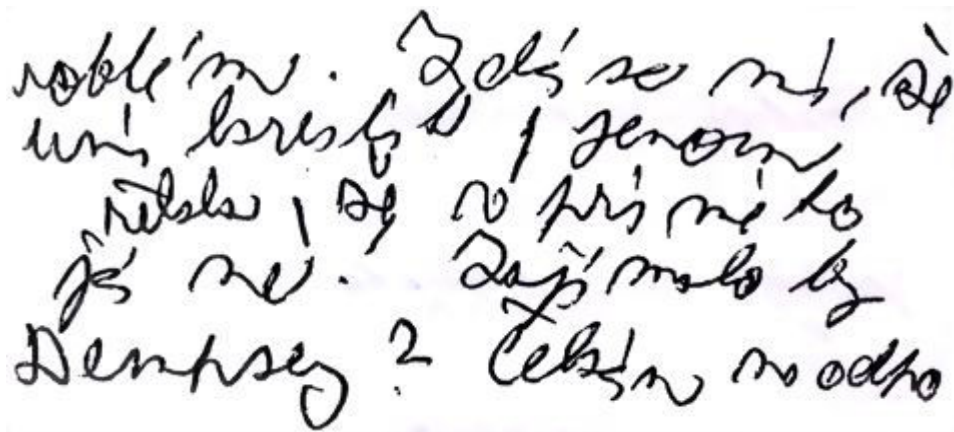 roblém. Zdá se mi, že
umí kreslit, jenom
řekla, že v prvním to
já ne. Zajímalo by
Dempsey? Čekám na odpo